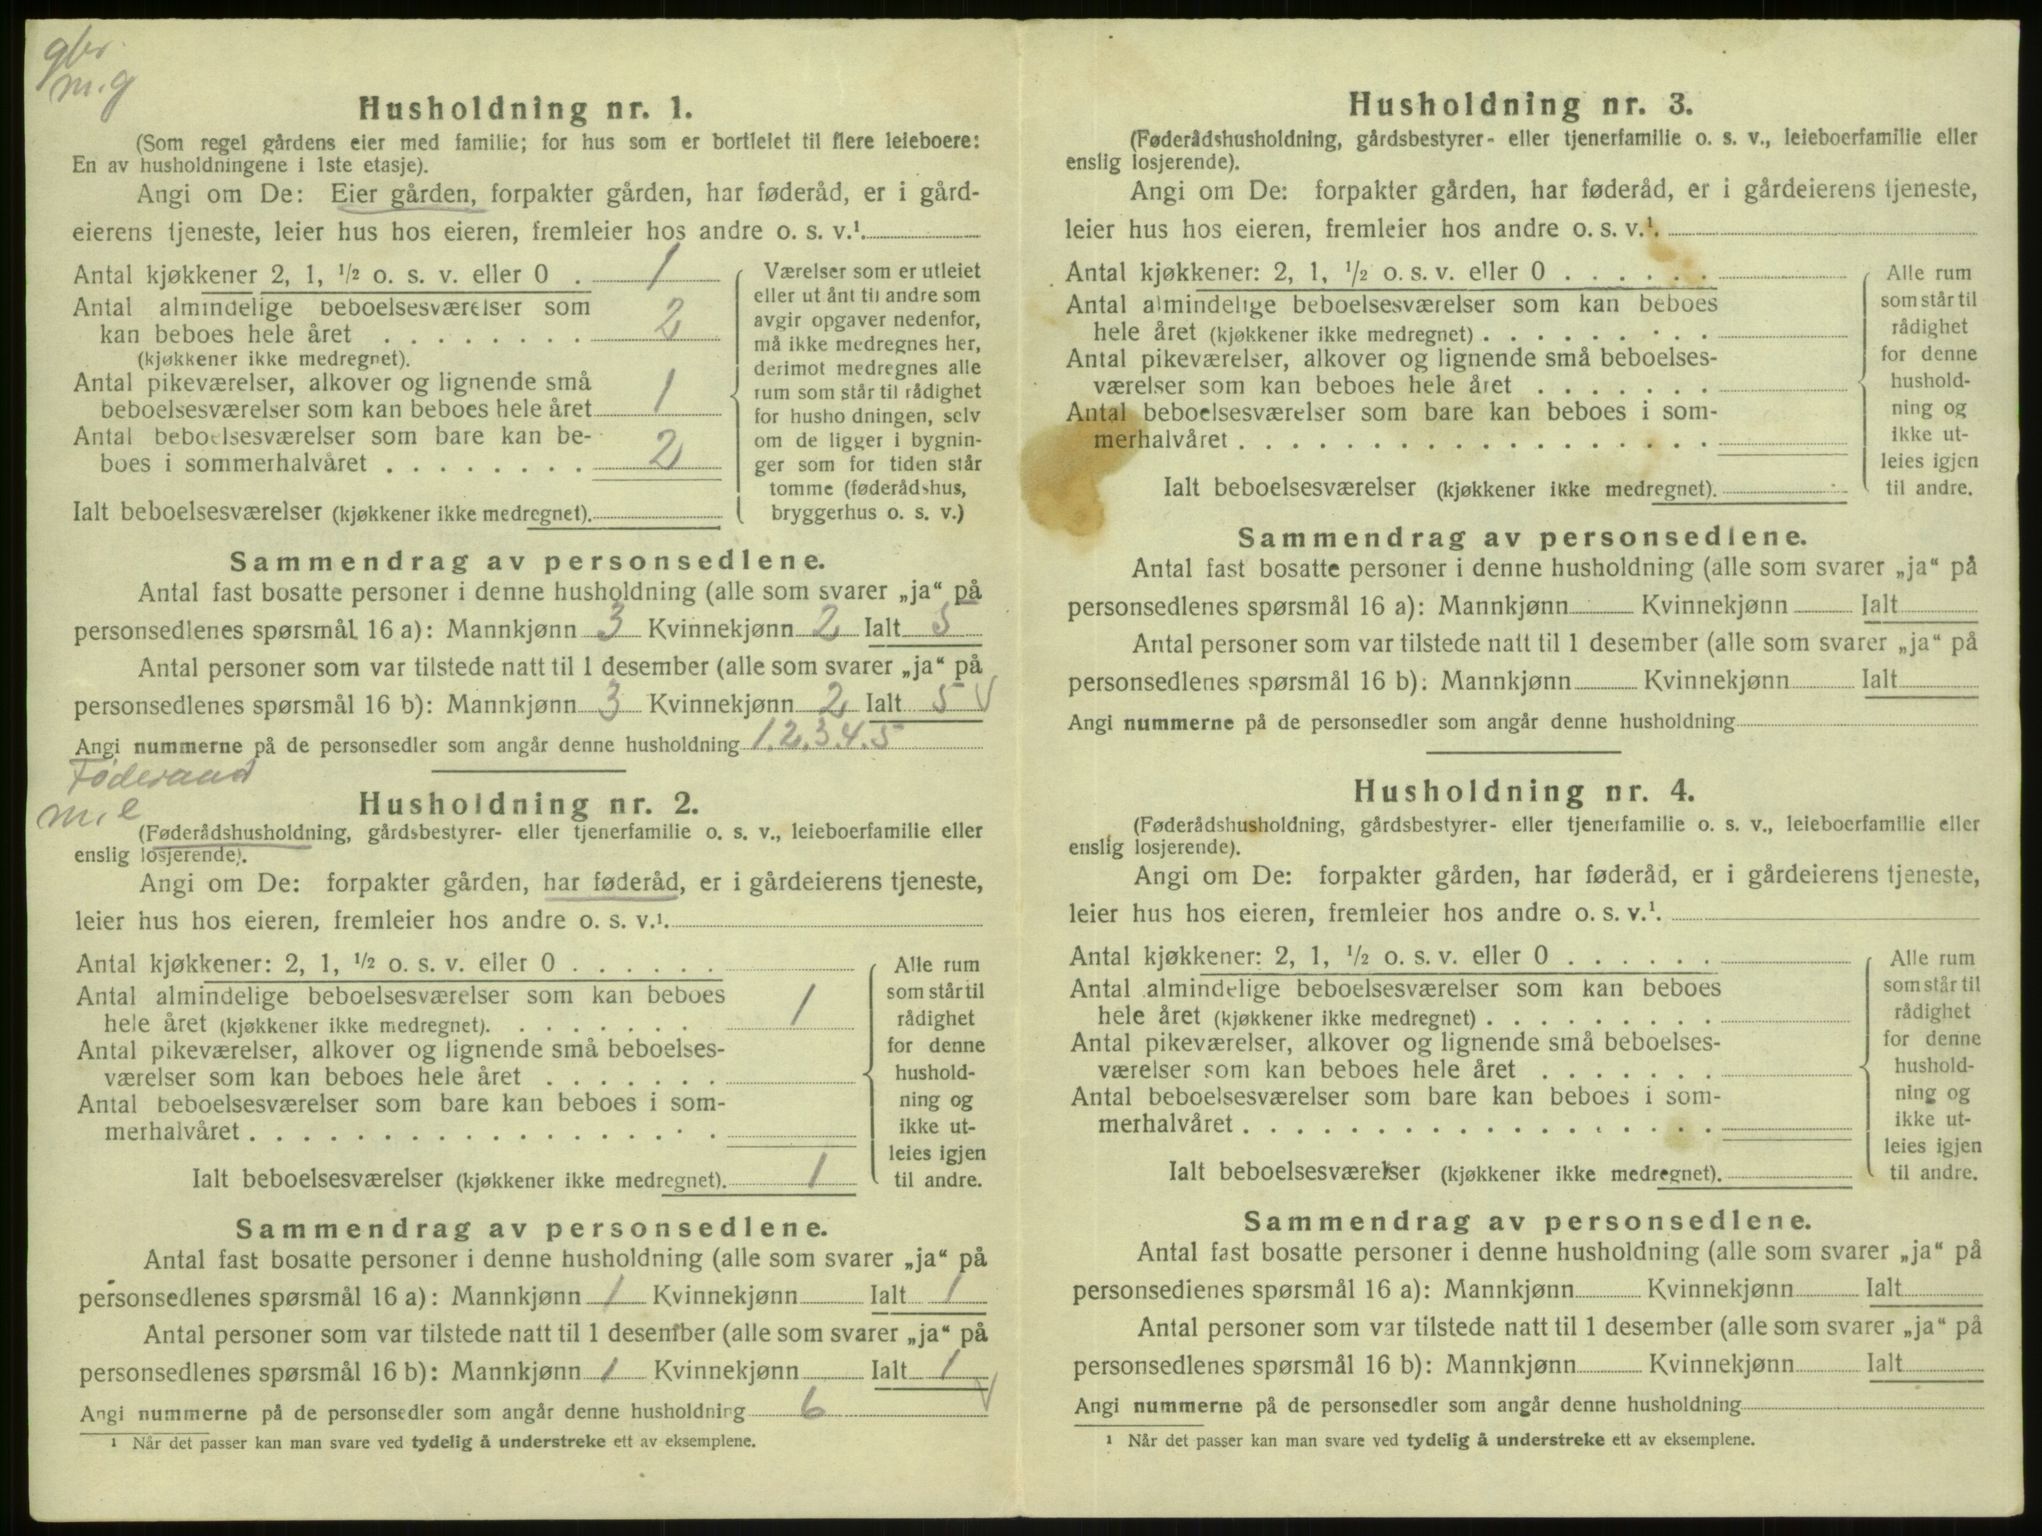 gbr.
m.g
Husholdning nr. 1.
(Som regel gårdens eier med familie; for hus som er bortleiet til flere leieboere:
En av husholdningene i 1ste etasje).
Angi om De: Eier gården, forpakter gården, har føderåd, er i gård-
eierens tjeneste, leier hus hos eieren, fremleier hos andre o. s. v.¹.
Antal kjøkkener 2, 1, ½ o. s. v. eller 0 . 1
Antal almindelige beboelsesværelser som
kan beboes hele året . . . . . . . . 2
(kjøkkener ikke medregnet).
Antal pikeværelser, alkover og lignende små
beboelsesværelser som kan beboes hele året 1
Antal beboelsesværelser som bare kan be-
boes i sommerhalvåret . . . . . . . . 2
Ialt beboelsesværelser (kjøkkener ikke medregnet).
Værelser som er utleiet
eller ut ånt til andre som
avgir opgaver nedenfor,
må ikke medregnes her,
derimot medregnes alle
rum som står til rådighet
for husho dningen, selv
om de ligger i bygnin-
ger som for tiden står
tomme (føderådshus,
bryggerhus o. s. v.)
Sammendrag av personsedlene.
Antal fast bosatte personer i denne husholdning (alle som svarer „ja“ på
personsedlenes spørsmål 16 a): Mannkjønn 3 Kvinnekjønn 2 Ialt 5
Antal personer som var tilstede natt til 1 desember (alle som svarer „ja“ på
personsedlenes spørsmål 16 b): Mannkjønn 3 Kvinnekjønn 2 Ialt 5 V
Angi nummerne på de personsedler som angår denne husholdning 1.2.3.4.5
Føderaad
m.l
Husholdning nr. 2.
(Føderådshusholdning, gårdsbestyrer- eller tjenerfamilie o. s. v., leieboerfamilie eller
enslig losjerende).
Angi om De: forpakter gården, har føderåd, er i gårdeierens tjeneste,
leier hus hos eieren, fremleier hos andre o. s. v.¹.
Antal kjøkkener: 2, 1, ½ o. s. v. eller 0 . . . . . .
Antal almindelige beboelsesværelser som kan beboes
hele året (kjøkkener ikke medregnet). . . . . . . . 1
Antal pikeværelser, alkover og lignende små beboelses-
værelser som kan beboes hele året . . . . . . .
Antal beboelsesværelser som bare kan beboes i som-
merhalvåret . . . . . . . . . . . . . . . . . .
Ialt beboelsesværelser (kjøkkener ikke medregnet). 1
Alle rum
som står til
rådighet
for denne
hushold-
ning og
ikke ut-
leies igjen
til andre.
Sammendrag av personsedlene.
Antal fast bosatte personer i denne husholdning (alle som svarer „ja“ på
personsedlenes spørsmål 16 a): Mannkjønn 1 Kvinnekjønn Ialt 1
Antal personer som var tilstede natt til 1 desember (alle som svarer „ja“ på
personsedlenes spørsmål 16 b): Mannkjønn 1 Kvinnekjønn Ialt 1 V
Angi nummerne på de personsedler som angår denne husholdning 6
¹ Når det passer kan man svare ved tydelig å understreke ett av eksemplene.
Husholdning nr. 3.
(Føderådshusholdning, gårdsbestyrer- eller tjenerfamilie o. s. v., leieboerfamilie eller
enslig losjerende).
Angi om De: forpakter gården, har føderåd, er i gårdeierens tjeneste,
leier hus hos eieren, fremleier hos andre o. s. v.¹.
Antal kjøkkener: 2, 1, ½ o. s. v. eller 0 . . . . . .
Antal almindelige beboelsesværelser som kan beboes
hele året (kjøkkener ikke medregnet) . . . . . . . . .
Antal pikeværelser, alkover og lignende små beboelses-
værelser som kan beboes hele året . . . . . . .
Antal beboelsesværelser som bare kan beboes i som-
merhalvåret . . . . . . . . . . . . . . . . . .
Ialt beboelsesværelser (kjøkkener ikke medregnet).
Alle rum
som står til
rådighet
for denne
hushold-
ning og
ikke ut-
leies igjen
til andre.
Sammendrag av personsedlene.
Antal fast bosatte personer i denne husholdning (alle som svarer „ja“ på
personsedlenes spørsmål 16 a): Mannkjønn Kvinnekjønn Ialt
Antal personer som var tilstede natt til 1 desember (alle som svarer „ja“ på
personsedlenes spørsmål 16 b): Mannkjønn Kvinnekjønn Ialt
Angi nummerne på de personsedler som angår denne husholdning
Husholdning nr. 4.
(Føderådshusholdning, gårdsbestyrer- eller tjenerfamilie o. s. v., leieboerfamilie eller
enslig losjerende).
Angi om De: forpakter gården, har føderåd, er i gårdeierens tjeneste,
leier hus hos eieren, fremleier hos andre o. s. v.¹.
Antal kjøkkener: 2, 1, ½ o. s. v. eller 0 . . . . . .
Antal almindelige beboelsesværelser som kan beboes
hele året (kjøkkener ikke medregnet) . . . . . . . . .
Antal pikeværelser, alkover og lignende små beboelses-
værelser som kan beboes hele året . . . . . . .
Antal beboelsesværelser som bare kan beboes i som-
merhalvåret . . . . . . . . . . . . . . . . . .
Ialt beboelsesværelser (kjøkkener ikke medregnet).
Alle rum
som står til
rådighet
for denne
hushold-
ning og
ikke ut-
leies igjen
til andre.
Sammendrag av personsedlene.
Antal fast bosatte personer i denne husholdning (alle som svarer „ja“ på
personsedlenes spørsmål 16 a): Mannkjønn Kvinnekjønn Ialt
Antal personer som var tilstede natt til 1 desember (alle som svarer „ja“ på
personsedlenes spørsmål 16 b): Mannkjønn Kvinnekjønn Ialt
Angi nummerne på de personsedler som angår denne husholdning
¹ Når det passer kan man svare ved tydelig å understreke ett av eksemplene.